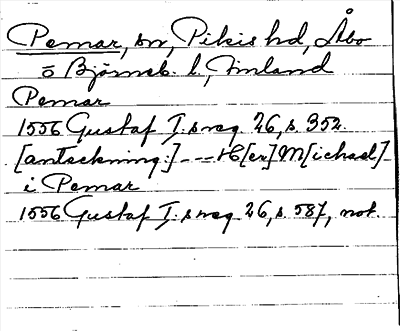 Pemar, sn, Pikis hd, Åbo
o Björneb. l, Finland
Pemar
1556 Gustaf I:s reg. 26, s. 352.
[anteckning:] --- H[er] M[ichael]
i Pemar
1556 Gustaf I:s reg. 26, s. 587, not.